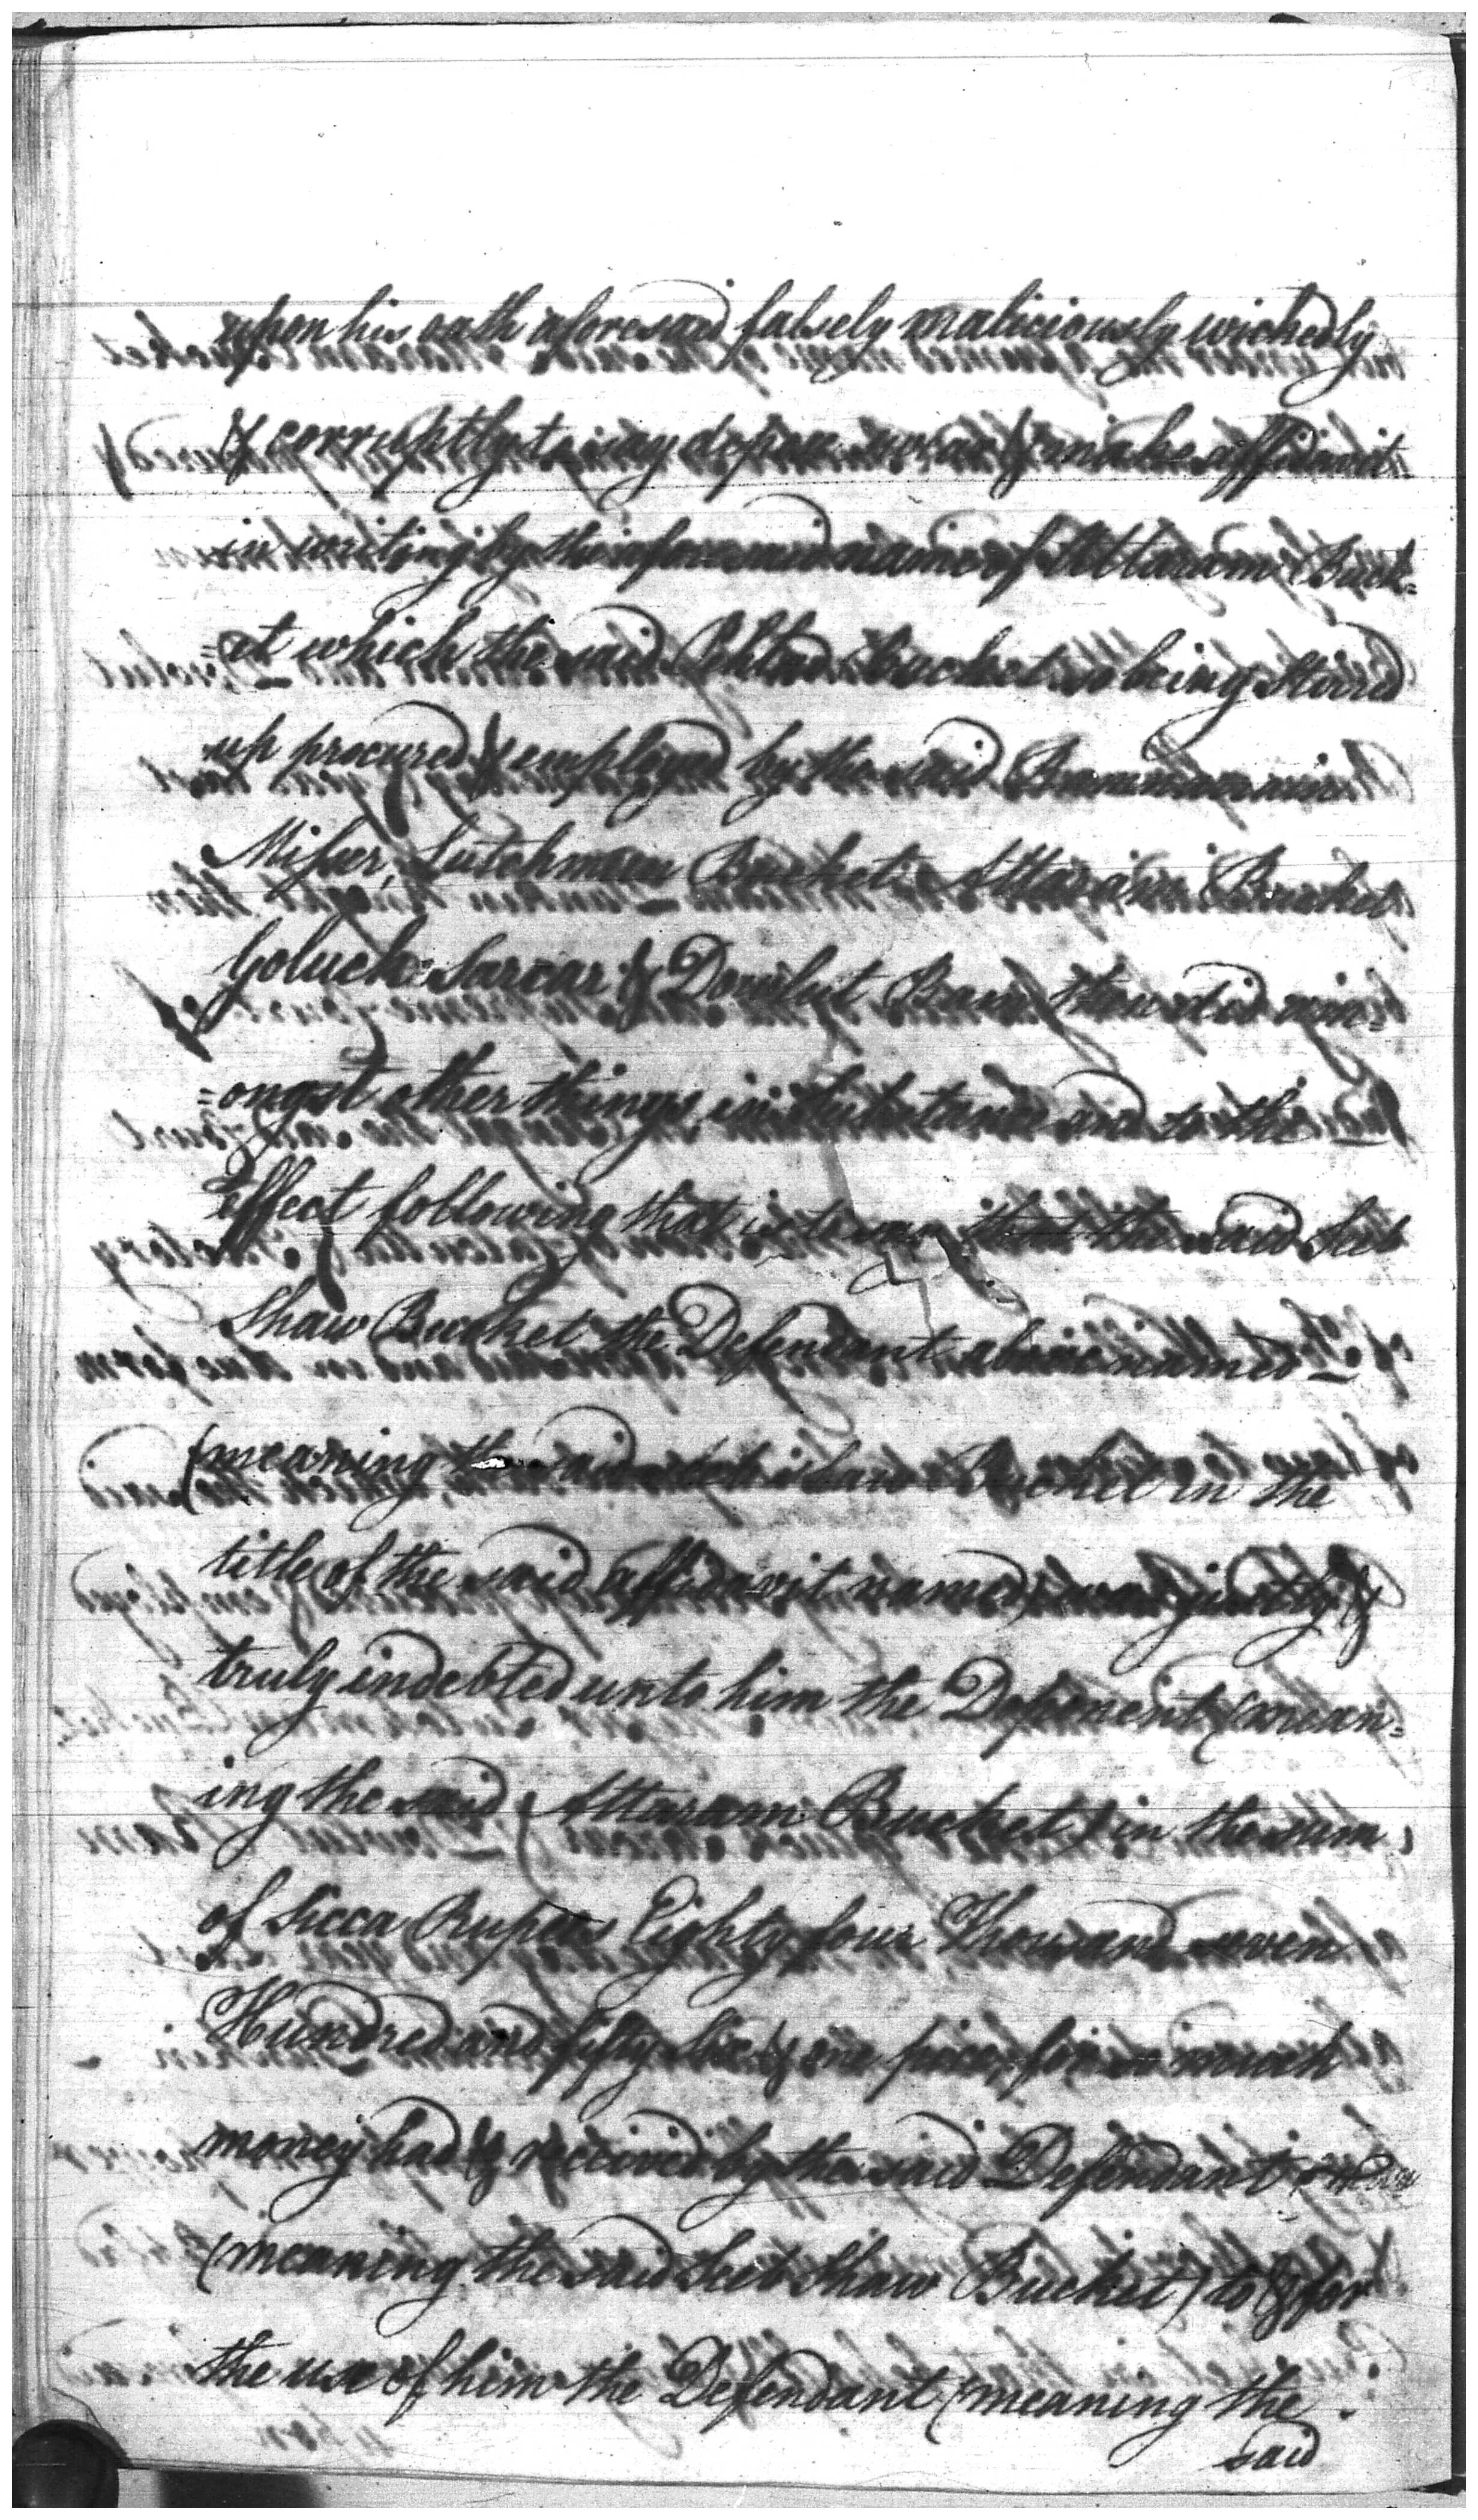 upon his oath aforesaid falsely maliciously wickedly
& corruptly to say depose swear & make affidavit
in writing by the aforesaid name of Attaram Buck=
=et which the said Bucket so being stirred
up procured & employed by the said
Misser, Lutchmun Bucket, Attaram Bucket
Goluck Sarcar & Dowlut Ram then did am=
=ongst other things, in substance and to the
effect following that is to say that the said Seeb
Shaw Bucket the Defendant above named
(meaning the said Seeb Shaw Bucket in the
title of the said affidavit named) was justly &
truly indebted unto him the Deponent (mean=
ing the said Attaram Bucket) in the sum
of Sicca Rupees Eighty four Thousand seven
Hundred and fifty Six & one pice, for so much
money had & received by the said Defendant
(meaning the said Seeb Shaw Bucket) to & for
the use of him the Defendant (meaning the
said